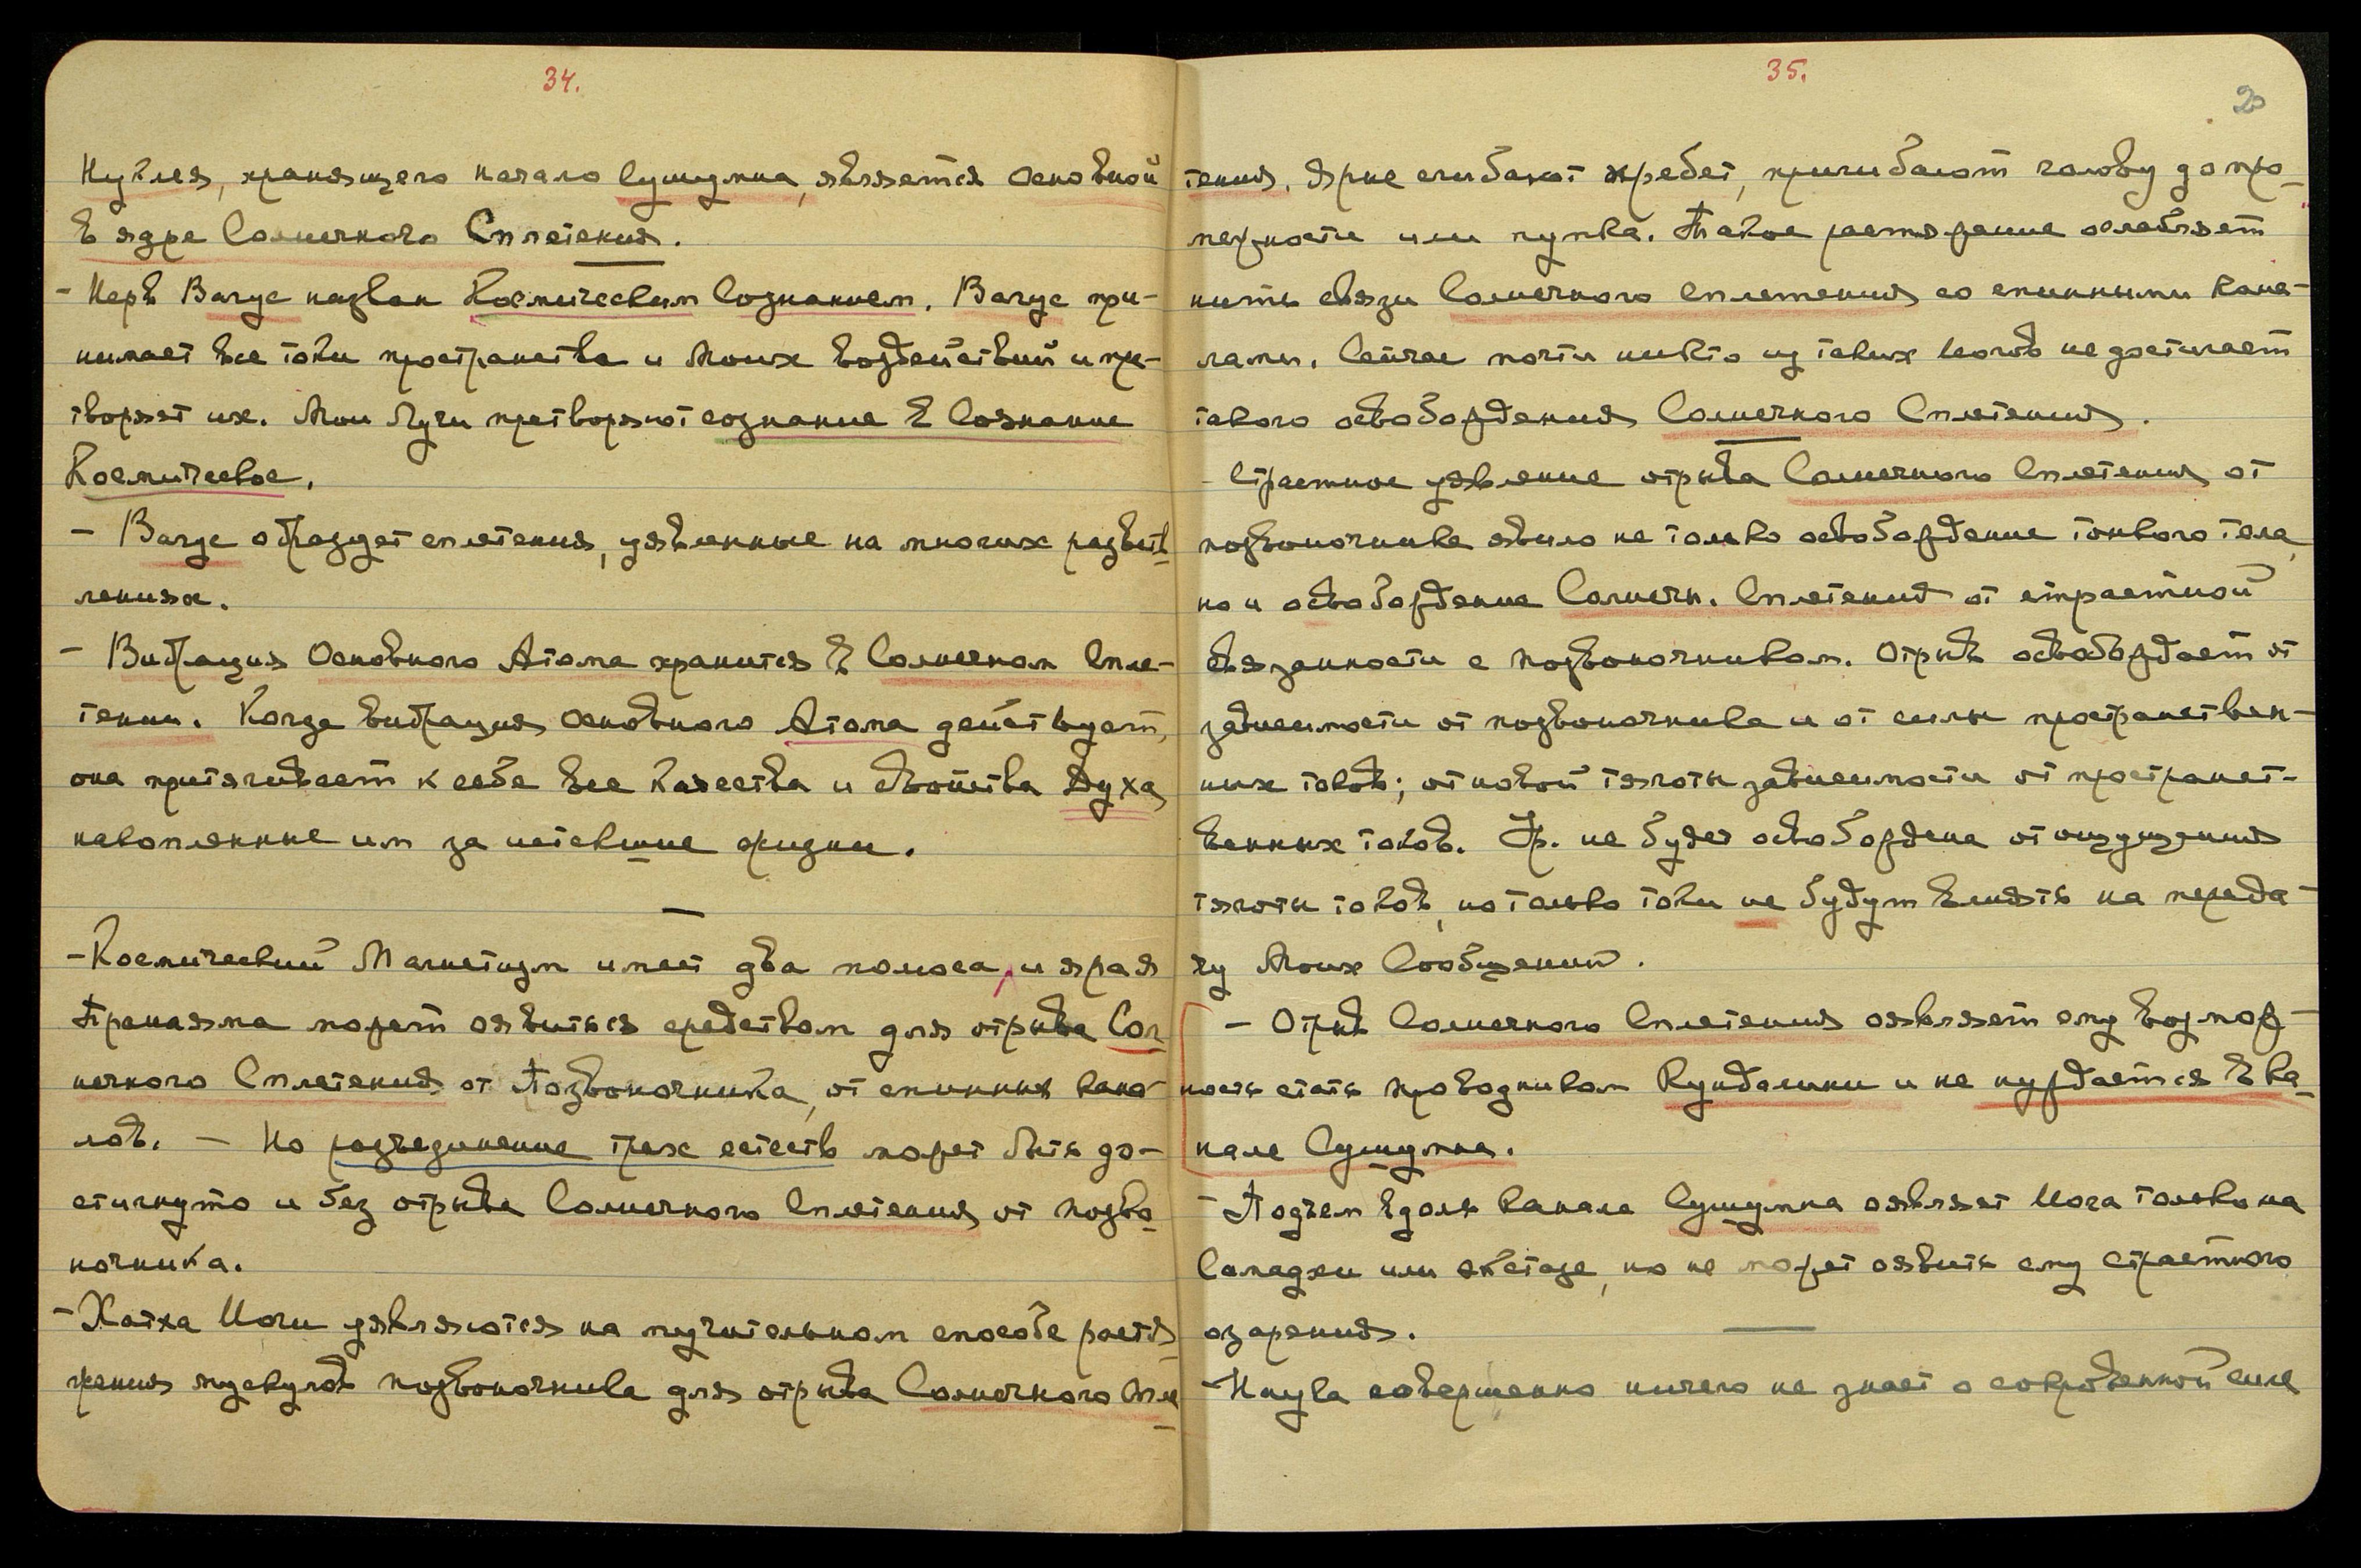 34.
Нуклея, хранящего начало Сушумна, является основной
в ядре Солнечного Сплетения.
- Нерв Вагус назван Космическим Сознанием. Вагус при-
нимает все токи пространства и Моих воздействий и пре-
творяет их. Мои Лучи претворяют сознание в Сознание
Космическое.
- Вагус образует сплетения, уявленные на многих разветв-
лениях.
- Вибрация Основного Атома хранится в Солнечном Спле-
тении. Когда вибрация основного Атома действует,
она притягивает к себе все качества и свойства Духа,
накопленные им за истекшие жизни.
- Космический Магнетизм имеет два полюса, и ярая
Пранаяма может оявиться средством для отрыва Сол-
нечного Сплетения от Позвоночника, от спинных кана-
лов. - Но разъединение трех естеств может быть до-
стигнуто и без отрыва Солнечного Сплетения от позво-
ночника.
- Хатха Йоги уявляются на мучительном способе растя-
жения мускулов позвоночника для отрыва Солнечного Спле-
35.
20
тения. Ярые сгибают хребет, пригибают голову до про-
межности или пупка. Такое растяжение ослабляет
нить связи Солнечного Сплетения со спинными кана-
лами. Сейчас почти никто из таких йогов не достигает
такого освобождения Солнечного Сплетения.
- Страстное уявление отрыва Солнечного Сплетения от
позвоночника явило не только освобождение тонкого тела,
но и освобождение Солнечн. Сплетения от страстной
связанности с позвоночником. Отрыв освобождает от
зависимости от позвоночника и от силы пространствен-
ных токов; от новой тяготы зависимости от пространст-
венных токов. Ур. не будет освобождена от ощущения
тяготы токов, но только токи не будут влиять на переда-
чу Моих Сообщений.
- Отрыв Солнечного Сплетения оявляет ему возмож-
ность стать проводником Кундалини и не нуждается в ка-
нале Сушумна.
- Подъем вдоль канала Сушумна оявляет Йога только на
Самадхи или экстазе, но не может оявить ему страстного
озарения.
- Наука совершенно ничего не знает о сокровенной силе